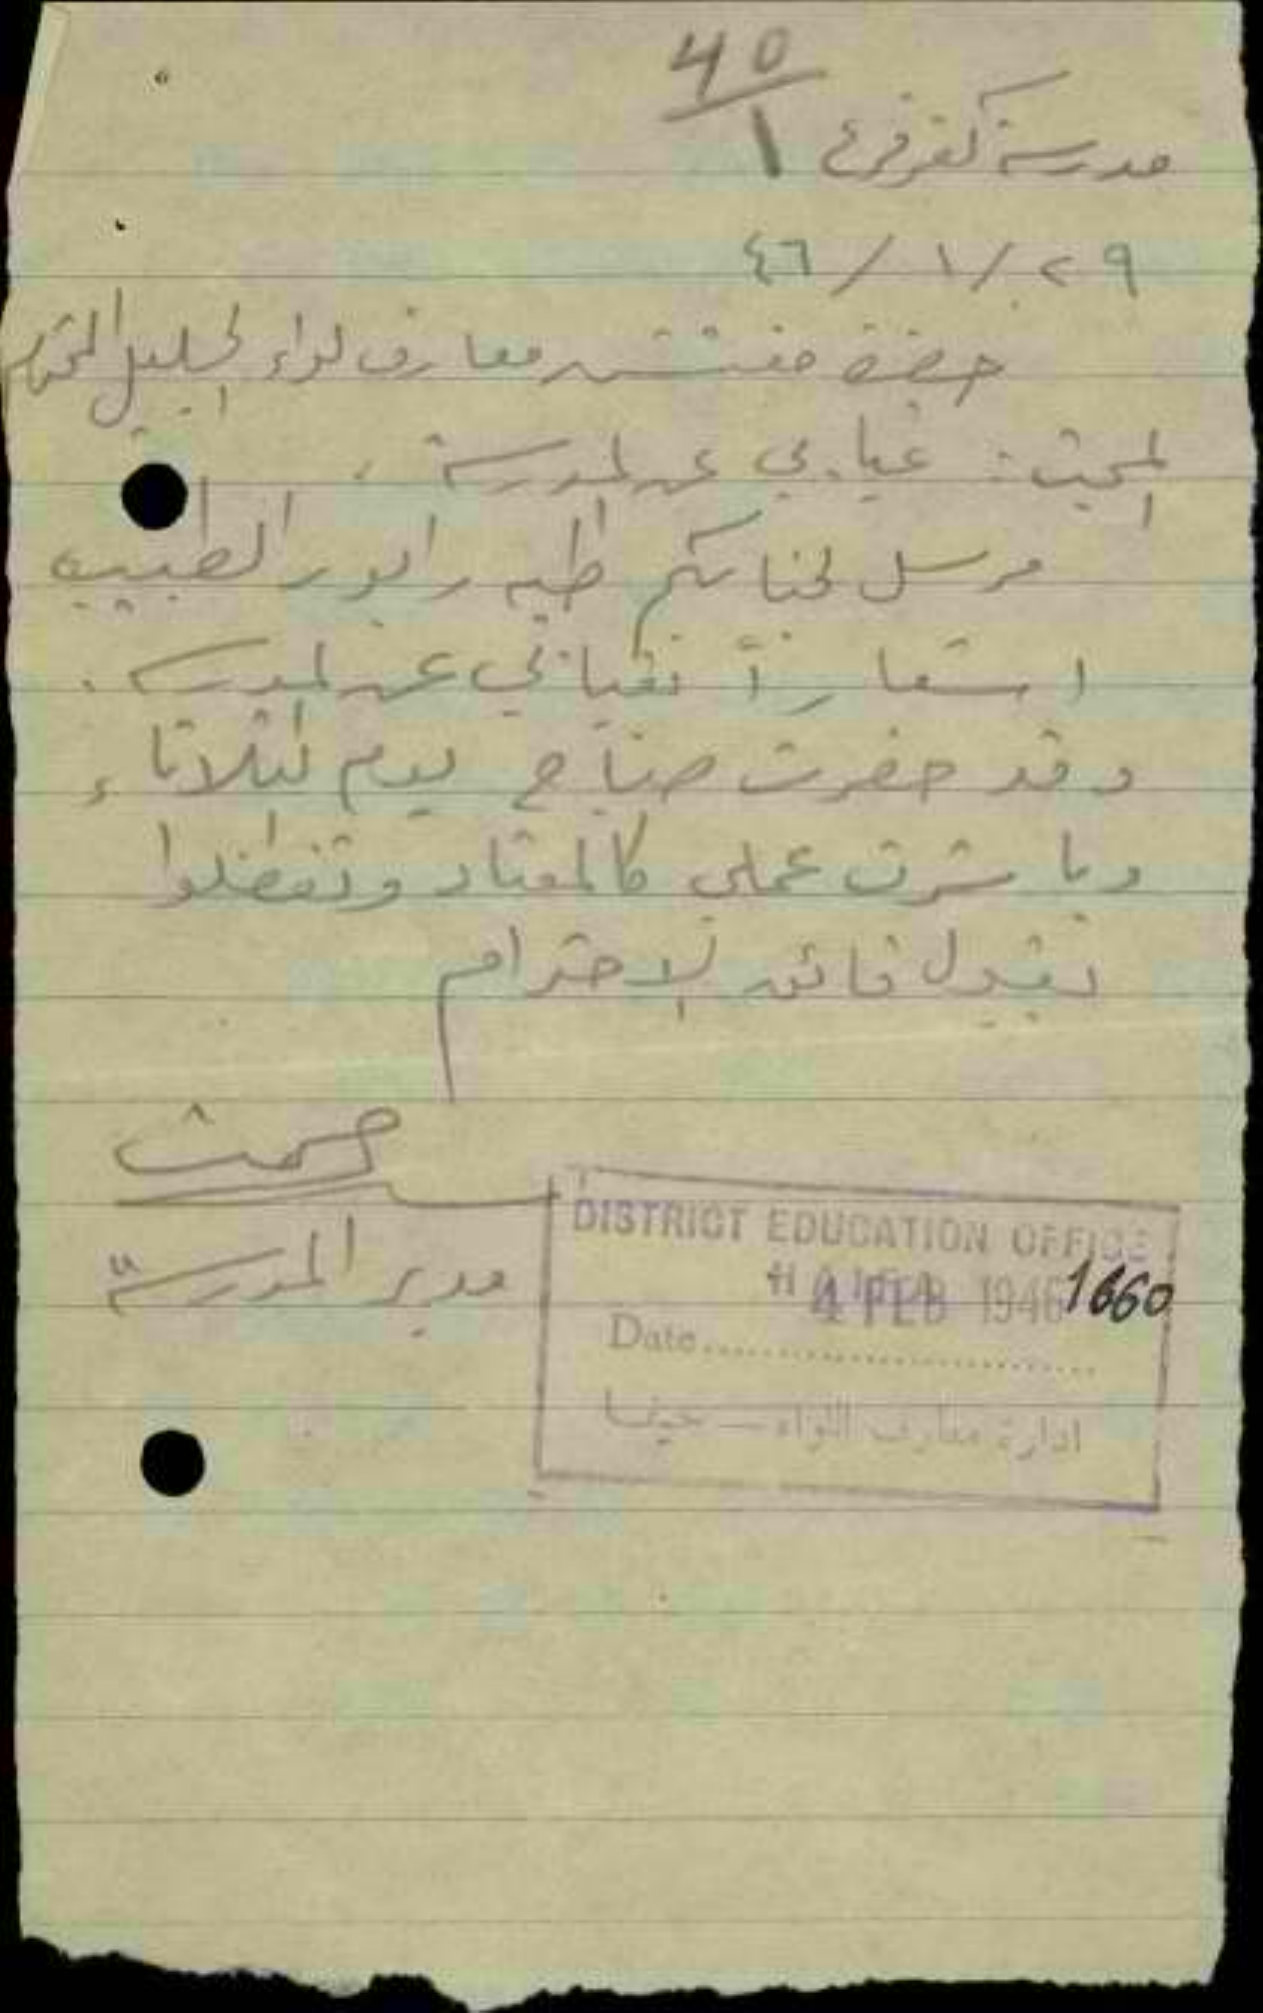 40
1
مدرسة كفر قرع
٢٩ / ١ / ٤٦
حضرة مفتش معارف لواء الجليل المحترم
المبحث : غيابي عن المدرسة .
مرسل لجنابكم طيه رابور الطبيب
اشعاراً بغيابي عن المدرسة .
وقد حضرت صباح يوم الثلاثاء
وباشرت عملي كالمعتاد وتفضلوا
بقبول فائق الاحترام
مدير المدرسة
DISTRICT EDUCATION OFFICE
HAIFA
4 FEB 1946 1660
Date
ادارة معارف اللواء - حيفا